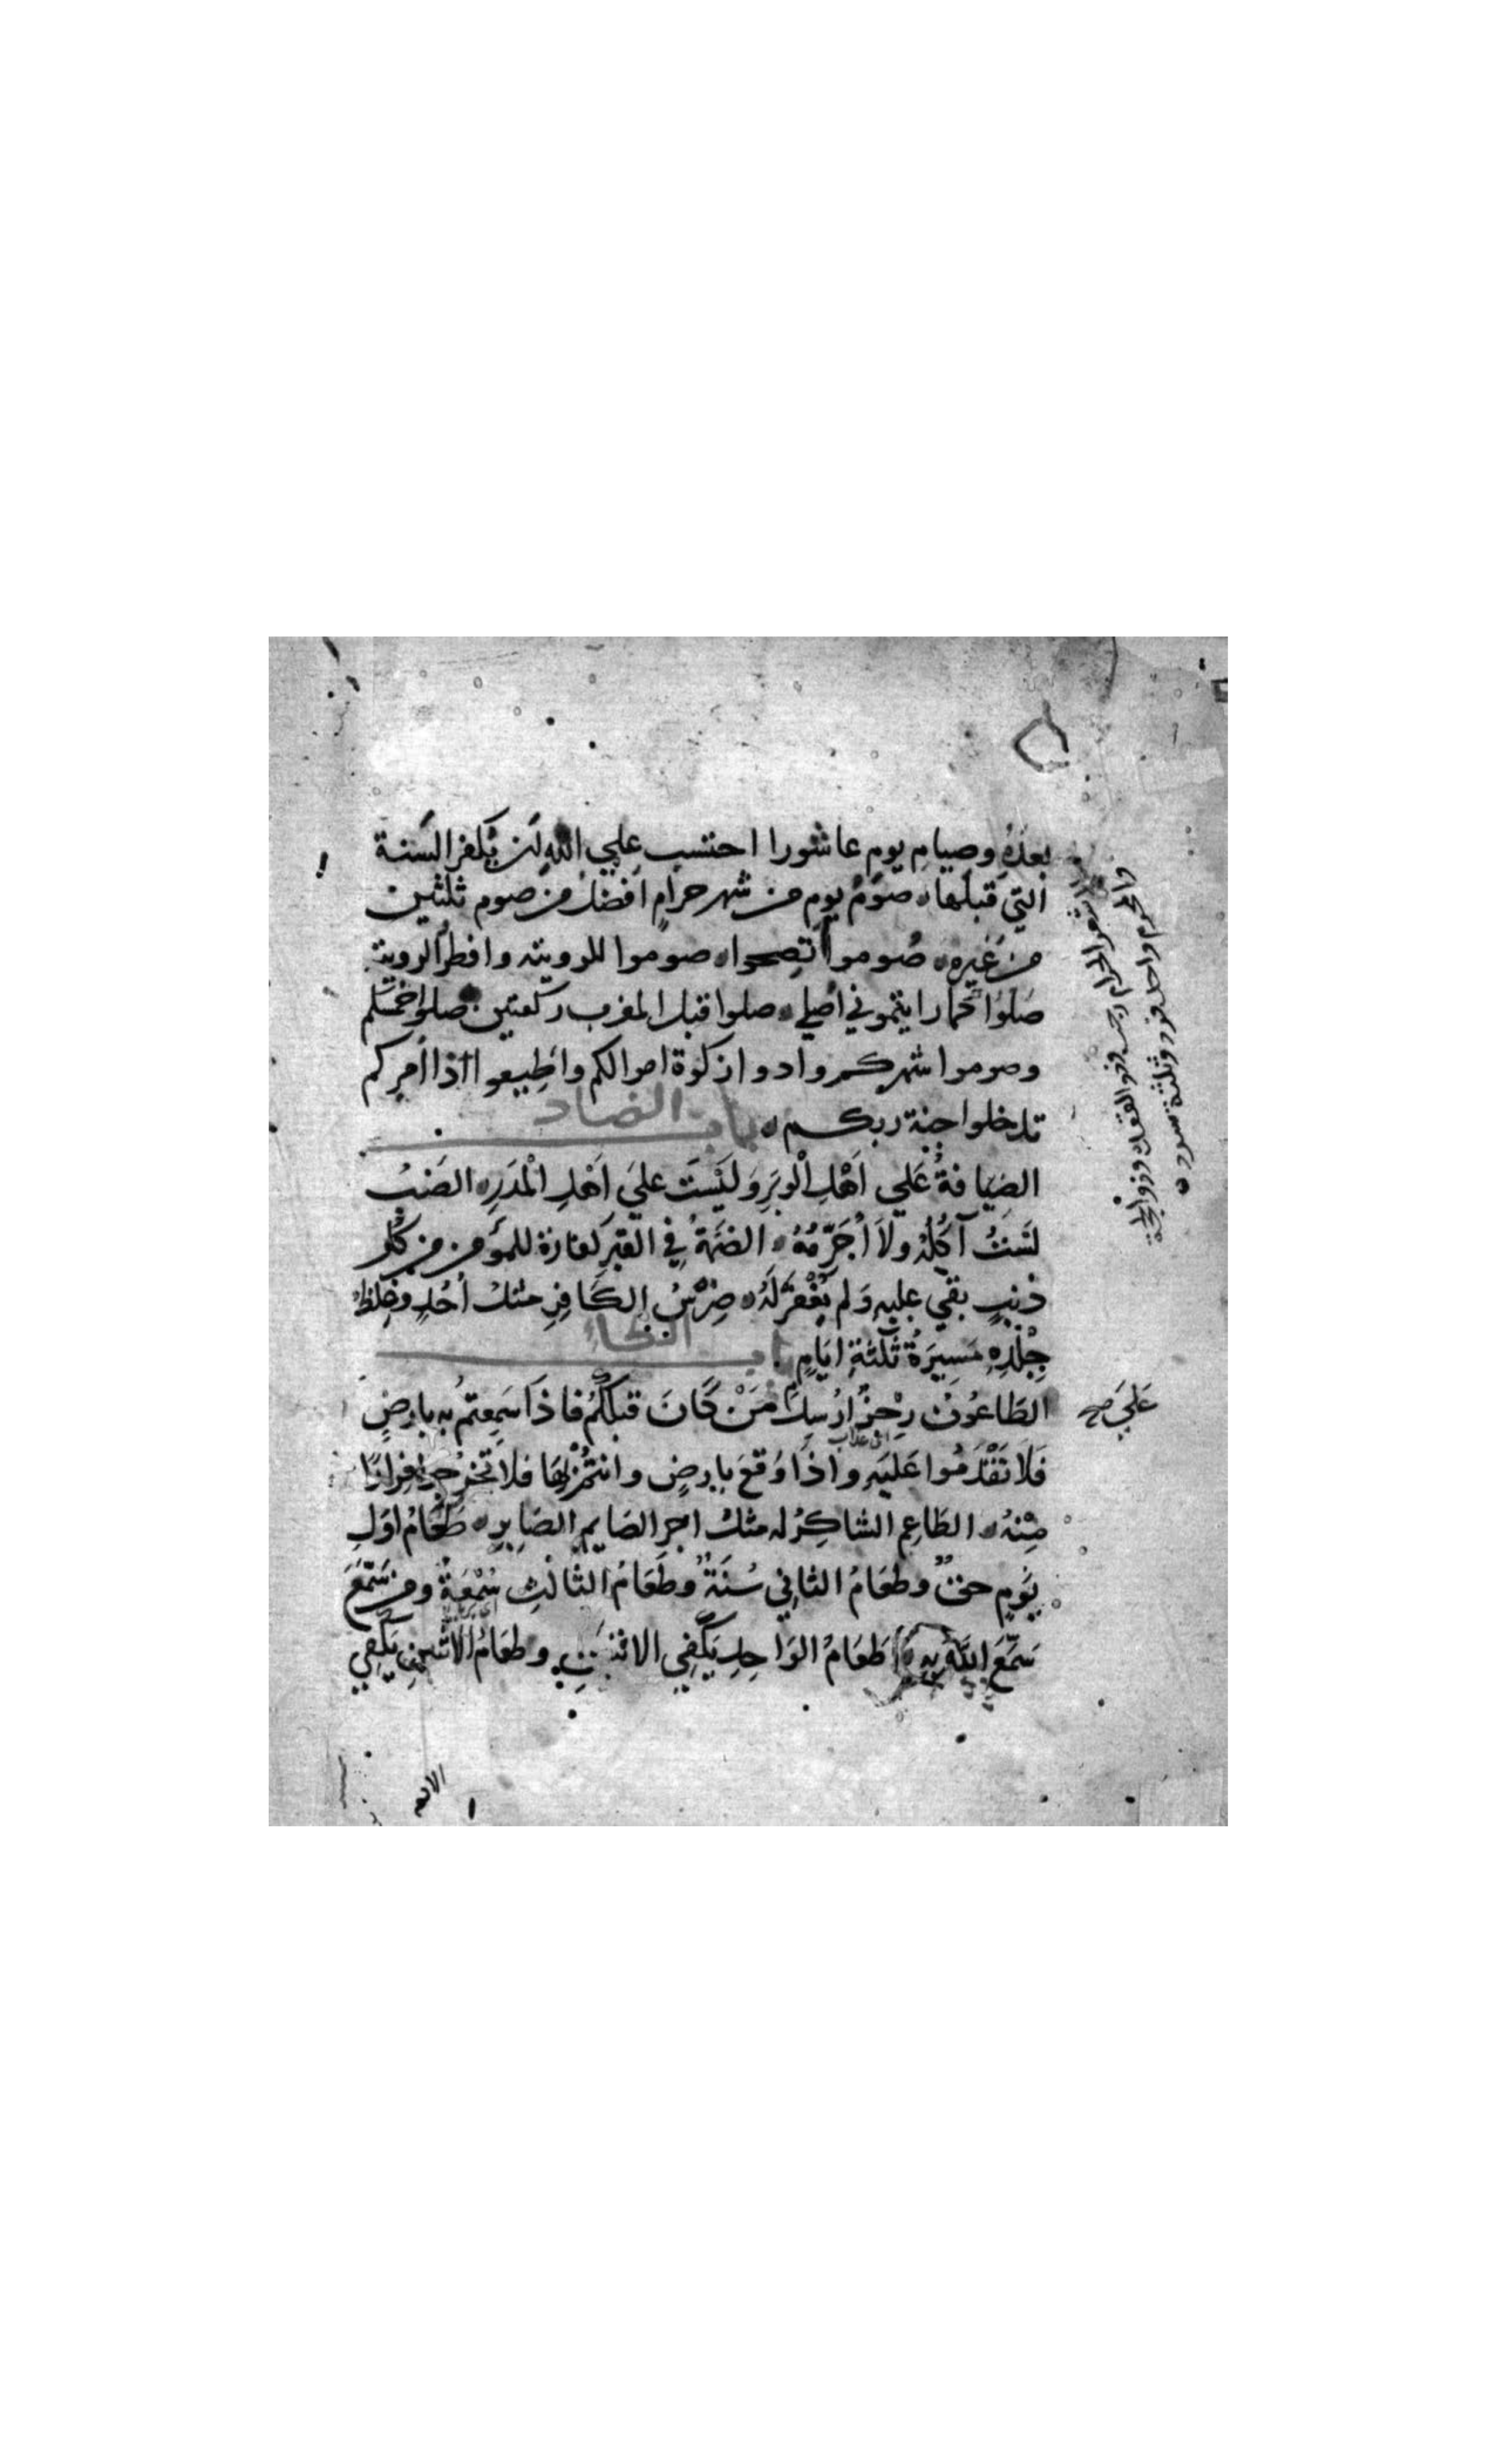 بعدَهُ وصيامِ يوم عاشورا احتسب علي اللهِ ان يُكفر السَنة
التي قبلَها صَومُ يوم من شهر حرامٍ افضل من صوم ثلثين
من غيره صُوموا تصحوا صوموا للرويته وافطرالرويته
صَلوُا كما رايتموني اُصلي صلوا قبل المغرب ركعتين صلوا خمسَكم
وصوموا شهركم وادوا زكوة اموالكم واَطِيعوا اذا امركم
تدخلوا جنة ربكم باب الضاد
الضِيَافةُ عَلي اَهْلِ الْوبَرِ وَلَيْسَتَ عليَ اَهْلِ الْمَدَرِ الضَبُ
لَسْتُ آكُلُهُ ولاَ اُحَرّمُهُ الضَمَّةُ في القبرِ كفارة للمؤمن من كل
ذنبٍ بقي عليهِ وَلم يُغْفَر لَهُ ضِرْسُ الكَافِرِ مثلُ اُحُدٍ وغِلظ
جِلْدِهِ مَسِيَرةُ ثَلثةِ ايَامٍ باب الطاء
الطَاعُونُ رِجْزٌ اُرْسِلَ مَنْ كَانَ قبلكُمْ فاذَا سَمِعتمُ به بارضٍ
عَليَ صح
فَلاَ تَقْدَمُوا عَليَهِ واذَا وَقعَ بارضٍ وانتُمْ بها فلاَ تخرجوا فِرارًا
اي عذاب
مِنْهُ الطَاعِم الشاكِرُ له مثلُ اجرِ الصَايمِ الصَابِرِ طَعَامُ اوّلِ
يَومٍ حقٌ وطعَامُ الثاني سُنَةٌ وطَعَامُ الثالثِ سُمْعَةٌ ومن سَمّعَ
سَمّعَ اللهُ بهِ طَعَامُ الوَاحِدِ يَكْفِي الاثنَينِ وطعَامُ الاثنينِ يَكْفي
والمحرم واحد فرد وثلثة سرد